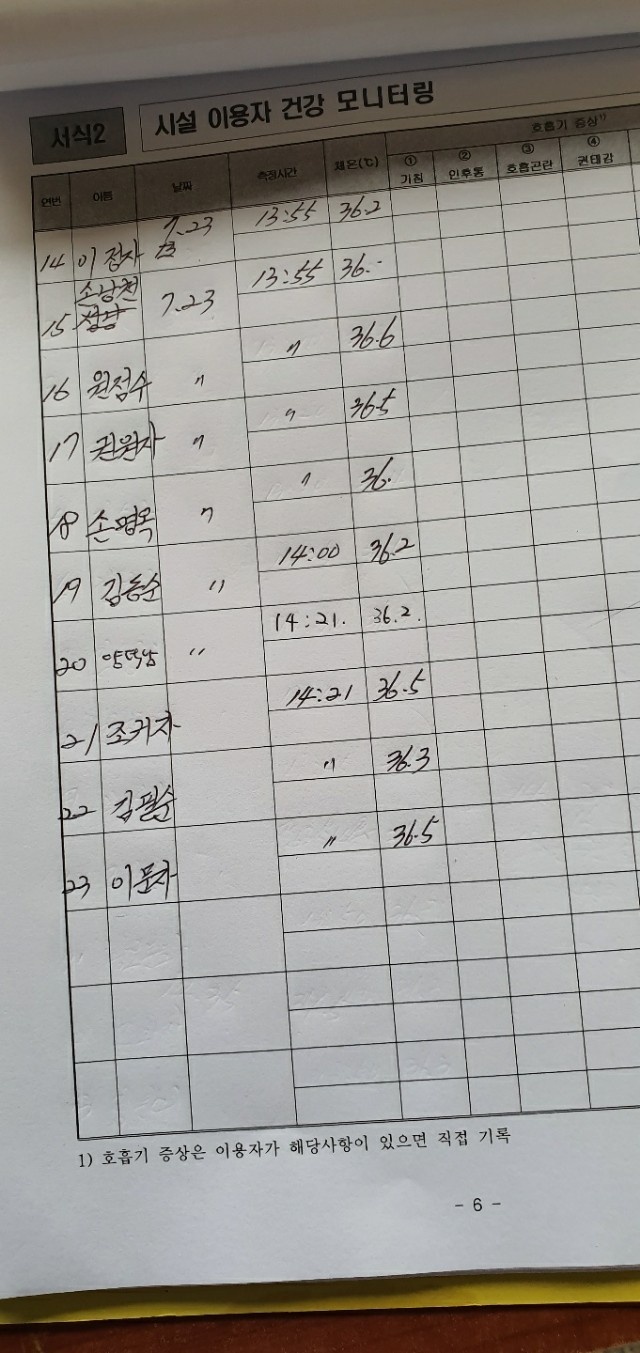 서식2 시설 이용자 건강 모니터링
연번 이름 날짜 측정시간 체온(℃) 호흡기 증상1)
① 기침 ② 인후통 ③ 호흡곤란 ④ 권태감
14 이점자 7.23 13:55 36.2
15 손남천 7.23 13:55 36.
16 원점수 〃 〃 36.6
17 권원자 〃 〃 36.5
18 손명옥 〃 〃 36.
19 김동순 〃 14:00 36.2
20 양덕남 〃 14:21. 36.2.
21 조커자 14:21 36.5
22 김필순 〃 36.3
23 이문자 〃 36.5
1) 호흡기 증상은 이용자가 해당사항이 있으면 직접 기록
- 6 -